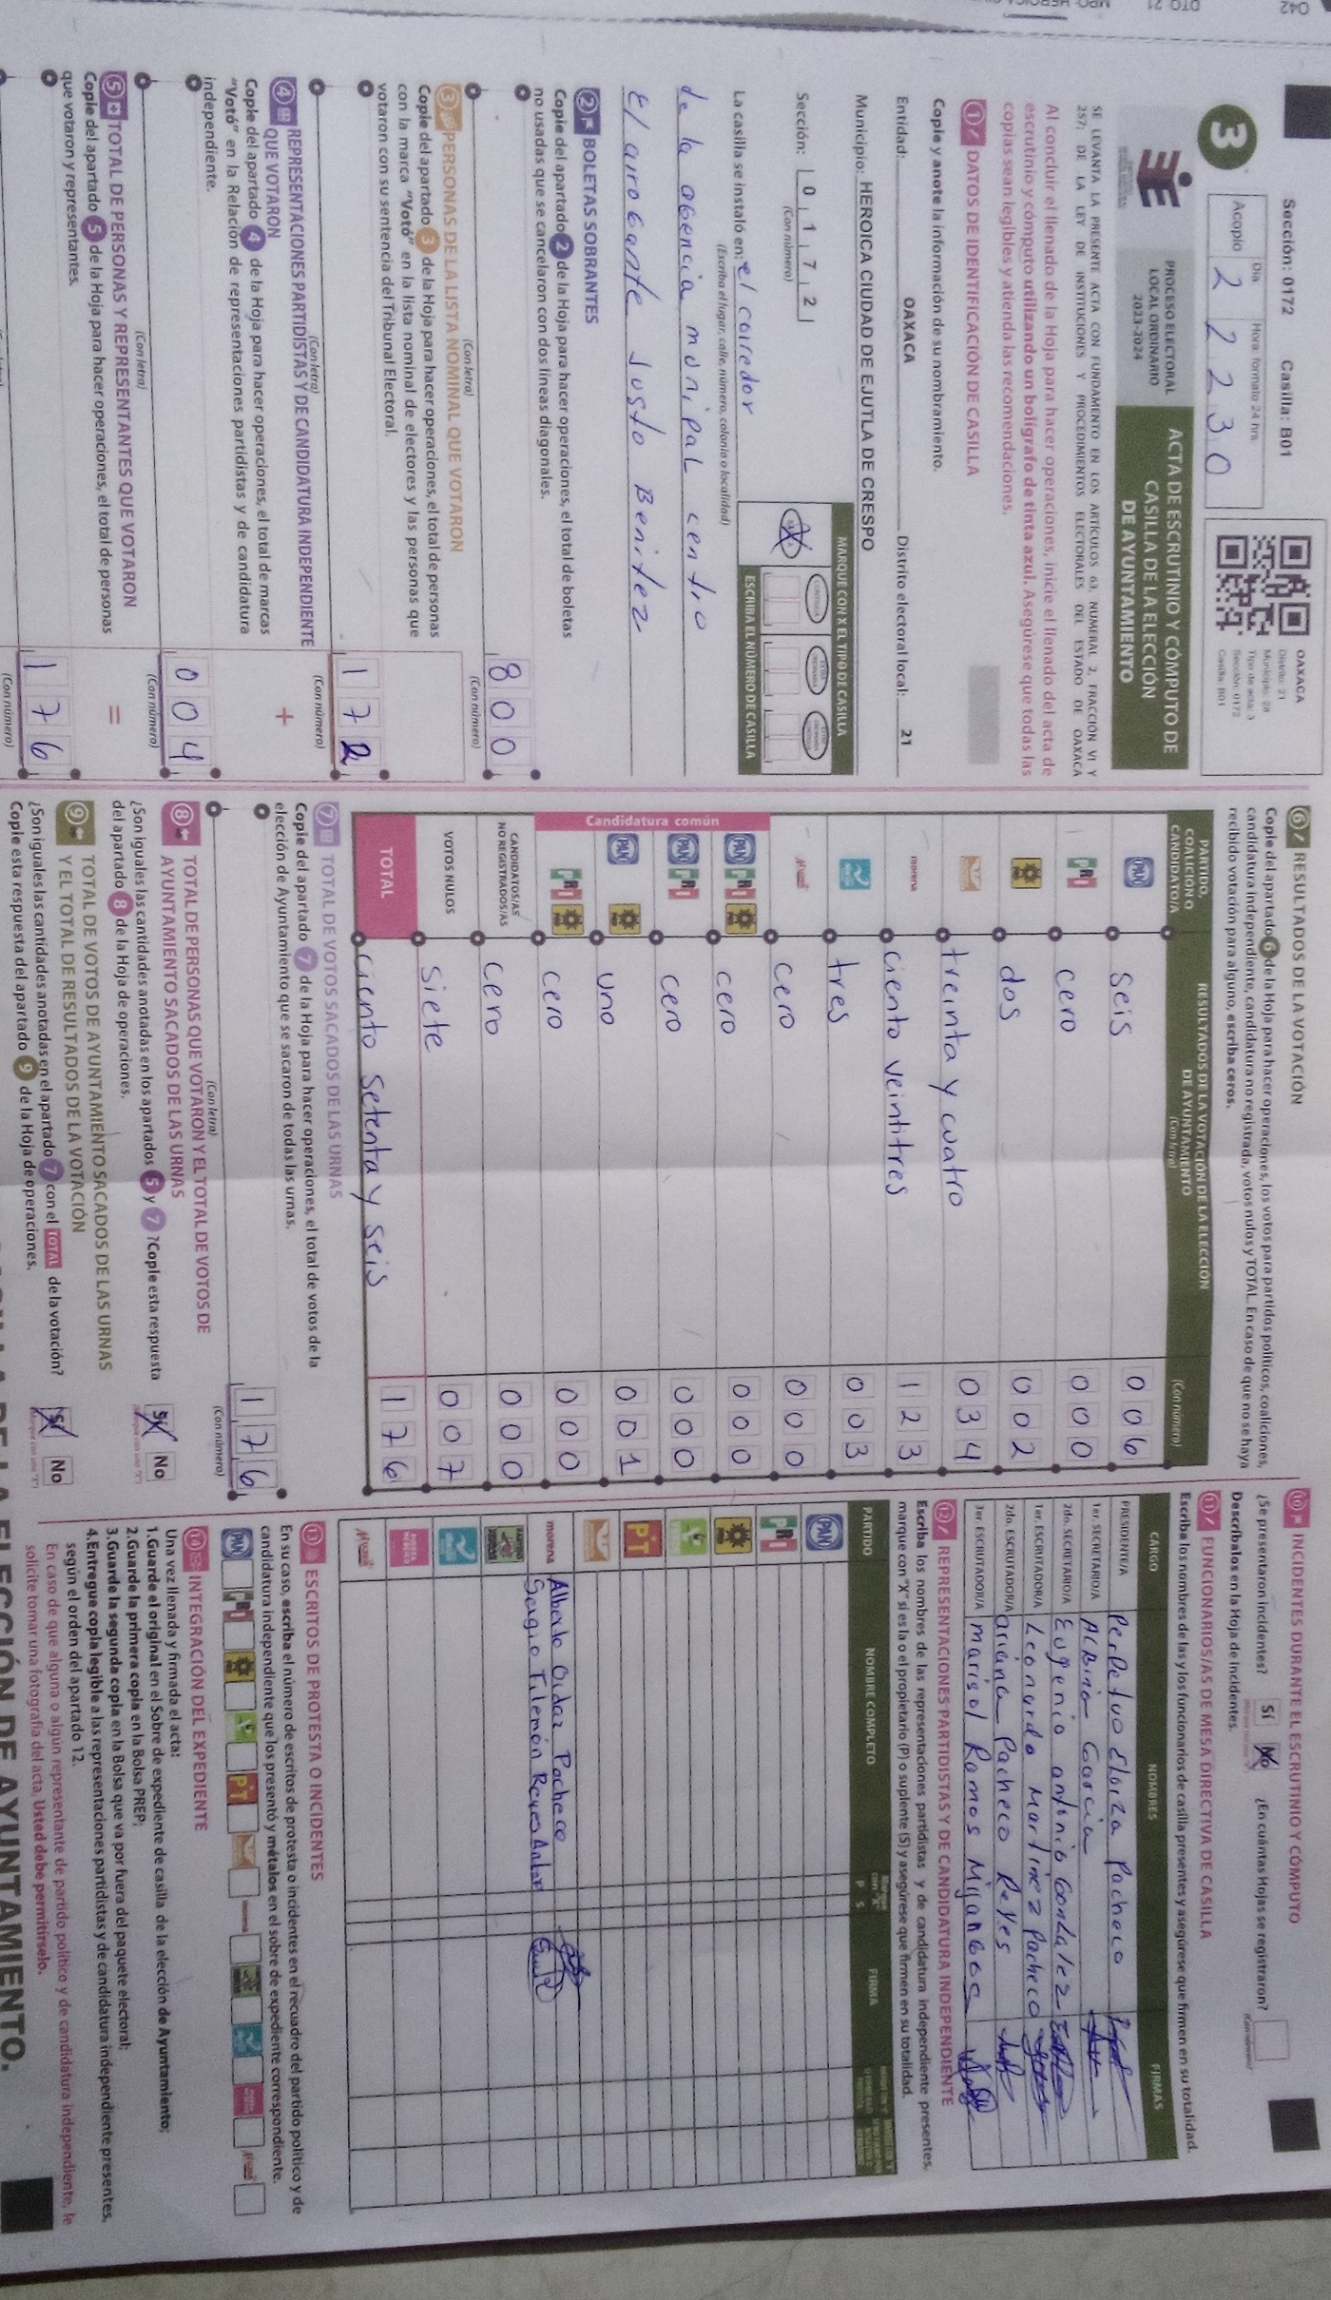 Sección: 0172 Casilla: B01
3
Acopio
Día
Hora formato 24 hrs.
2 2 2 3 0
OAXACA
Distrito: 21
Municipio: 28
Tipo de acta: 3
Sección: 0172
Casilla: B01
PROCESO ELECTORAL
LOCAL ORDINARIO
2023-2024
ACTA DE ESCRUTINIO Y CÓMPUTO DE
CASILLA DE LA ELECCIÓN
DE AYUNTAMIENTO
SE LEVANTA LA PRESENTE ACTA CON FUNDAMENTO EN LOS ARTÍCULOS 63, NUMERAL 2, FRACCIÓN VI Y
257; DE LA LEY DE INSTITUCIONES Y PROCEDIMIENTOS ELECTORALES DEL ESTADO DE OAXACA
Al concluir el llenado de la Hoja para hacer operaciones, inicie el llenado del acta de
escrutinio y cómputo utilizando un bolígrafo de tinta azul. Asegúrese que todas las
copias sean legibles y atienda las recomendaciones.
1 DATOS DE IDENTIFICACIÓN DE CASILLA
Copie y anote la información de su nombramiento.
Entidad: OAXACA Distrito electoral local: 21
Municipio: HEROICA CIUDAD DE EJUTLA DE CRESPO
Sección: 0 1 7 2
(Con número)
MARQUE CON X EL TIPO DE CASILLA
ESCRIBA EL NÚMERO DE CASILLA
La casilla se instaló en: el corredor
(Escriba el lugar, calle, número, colonia o localidad)
de la agencia municipal centro
el airogante Justo Benitez
2 BOLETAS SOBRANTES
Copie del apartado 2 de la Hoja para hacer operaciones, el total de boletas
no usadas que se cancelaron con dos líneas diagonales.
8 0 0
(Con letra) (Con número)
3 PERSONAS DE LA LISTA NOMINAL QUE VOTARON
Copie del apartado 3 de la Hoja para hacer operaciones, el total de personas
con la marca "Votó" en la lista nominal de electores y las personas que
votaron con su sentencia del Tribunal Electoral.
1 7 2
(Con letra) (Con número)
4 REPRESENTACIONES PARTIDISTAS Y DE CANDIDATURA INDEPENDIENTE
QUE VOTARON
+
Copie del apartado 4 de la Hoja para hacer operaciones, el total de marcas
"Votó" en la Relación de representaciones partidistas y de candidatura
independiente.
0 0 4
(Con letra) (Con número)
5 TOTAL DE PERSONAS Y REPRESENTANTES QUE VOTARON
=
Copie del apartado 5 de la Hoja para hacer operaciones, el total de personas
que votaron y representantes.
1 7 6
(Con número)
6 RESULTADOS DE LA VOTACIÓN
Copie del apartado 6 de la Hoja para hacer operaciones, los votos para partidos políticos, coaliciones,
candidatura independiente, candidatura no registrada, votos nulos y TOTAL. En caso de que no se haya
recibido votación para alguno, escriba ceros.
PARTIDO,
COALICIÓN O
CANDIDATO/A
RESULTADOS DE LA VOTACIÓN DE LA ELECCIÓN
DE AYUNTAMIENTO
(Con letra) (Con número)
PAN seis 0 0 6
PRI cero 0 0 0
dos 0 0 2
treinta y cuatro 0 3 4
morena ciento veintitres 1 2 3
tres 0 0 3
cero 0 0 0
Candidatura común
PAN PRI cero 0 0 0
PAN PRI cero 0 0 0
PAN uno 0 0 1
PRI cero 0 0 0
CANDIDATOS/AS
NO REGISTRADOS/AS
cero 0 0 0
VOTOS NULOS siete 0 0 7
TOTAL ciento setenta y seis 1 7 6
7 TOTAL DE VOTOS SACADOS DE LAS URNAS
Copie del apartado 7 de la Hoja para hacer operaciones, el total de votos de la
elección de Ayuntamiento que se sacaron de todas las urnas.
1 7 6
(Con letra) (Con número)
8 TOTAL DE PERSONAS QUE VOTARON Y EL TOTAL DE VOTOS DE
AYUNTAMIENTO SACADOS DE LAS URNAS
¿Son iguales las cantidades anotadas en los apartados 5 y 7? Copie esta respuesta
del apartado 8 de la Hoja de operaciones.
SÍ No
9 TOTAL DE VOTOS DE AYUNTAMIENTO SACADOS DE LAS URNAS
Y EL TOTAL DE RESULTADOS DE LA VOTACIÓN
¿Son iguales las cantidades anotadas en el apartado 7 con el TOTAL de la votación?
Copie esta respuesta del apartado 9 de la Hoja de operaciones.
SÍ No
10 INCIDENTES DURANTE EL ESCRUTINIO Y CÓMPUTO
¿Se presentaron incidentes? SÍ No ¿En cuántas Hojas se registraron?
Descríbalos en la Hoja de incidentes.
11 FUNCIONARIOS/AS DE MESA DIRECTIVA DE CASILLA
Escriba los nombres de las y los funcionarios de casilla presentes y asegúrese que firmen en su totalidad.
CARGO NOMBRES FIRMAS
PRESIDENTE/A Perpetuo Eloiza Pacheco
1er. SECRETARIO/A Albino Garcia
2do. SECRETARIO/A Eugenio antonio Gonzalez
1er. ESCRUTADOR/A Leonardo Martinez Pacheco
2do. ESCRUTADOR/A ariana Pacheco Reyes
3er. ESCRUTADOR/A marisol Ramos Miganboa
12 REPRESENTACIONES PARTIDISTAS Y DE CANDIDATURA INDEPENDIENTE
Escriba los nombres de las representaciones partidistas y de candidatura independiente presentes,
marque con "X" si es la o el propietario (P) o suplente (S) y asegúrese que firmen en su totalidad.
PARTIDO NOMBRE COMPLETO P S FIRMA
PAN
PRI
PT
morena Alberto Oidor Pacheco
Sergio Filemón Reyes Antonio
13 ESCRITOS DE PROTESTA O INCIDENTES
En su caso, escriba el número de escritos de protesta o incidentes en el recuadro del partido político y de
candidatura independiente que los presentó y métalos en el sobre de expediente correspondiente.
PAN PRI PT
14 INTEGRACIÓN DEL EXPEDIENTE
Una vez llenada y firmada el acta:
1.Guarde el original en el Sobre de expediente de casilla de la elección de Ayuntamiento;
2.Guarde la primera copia en la Bolsa PREP;
3.Guarde la segunda copia en la Bolsa que va por fuera del paquete electoral;
4.Entregue copia legible a las representaciones partidistas y de candidatura independiente presentes,
según el orden del apartado 12.
En caso de que alguna o algún representante de partido político y de candidatura independiente, le
solicite tomar una fotografía del acta, Usted debe permitírselo.
ELECCIÓN DE AYUNTAMIENTO.